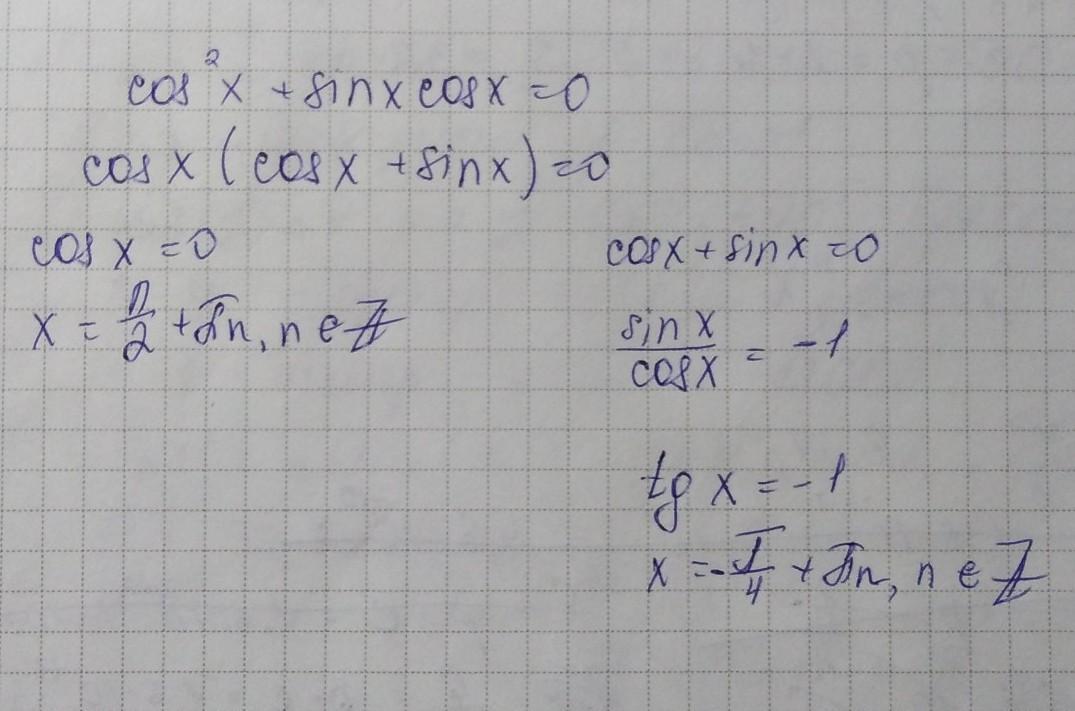 cos²x + sinx cosx = 0
cos x (cosx + sinx) = 0
cos x = 0
x = π/2 + πn, n ∈ Z
cosx + sinx = 0
sin x / cosx = -1
tg x = -1
x = -π/4 + πn, n ∈ Z